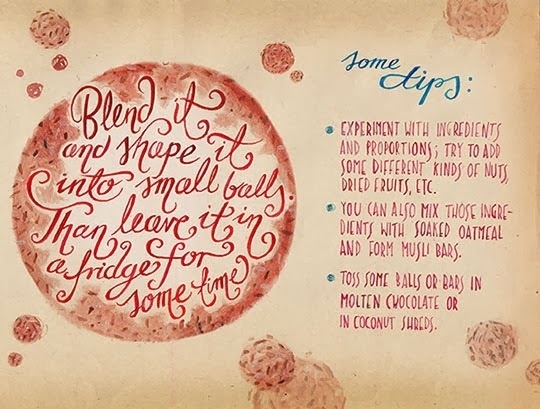 Blend it
and shape it
into small balls.
Than leave it in
a fridge for
some time
some
tips:
EXPERIMENT WITH INGREDIENTS
AND PROPORTIONS; TRY TO ADD
SOME DIFFERENT KINDS OF NUTS,
DRIED FRUITS, ETC.
YOU CAN ALSO MIX THOSE INGRE-
DIENTS WITH SOAKED OATMEAL
AND FORM MUSLI BARS.
TOSS SOME BALLS OR BARS IN
MOLTEN CHOCOLATE OR
IN COCONUT SHREDS.